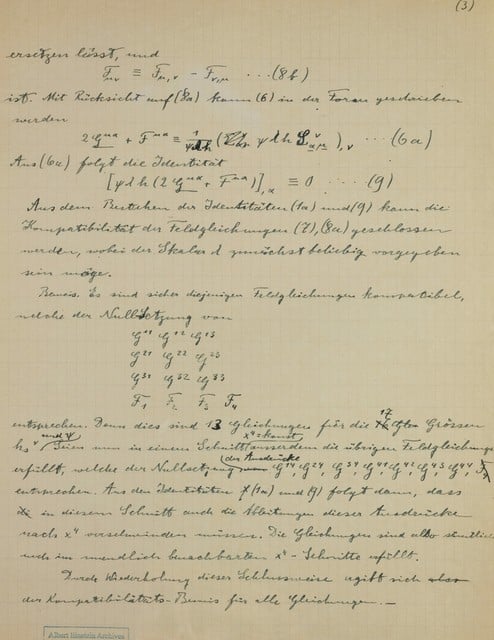 (3)
ersetzen lässt, und
F_μν ≡ F_μ,ν − F_ν,μ ··· (8b)
ist. Mit Rücksicht auf (8a) kann (6) in der Form geschrieben
werden
2 G^μα + F^μα ≡ (ψ λ h )_,ν ··· (6a)
Aus (6a) folgt die Identität
[ψ λ h (2 G^μα + F^μα)]_,α ≡ 0 ··· (9)
Aus dem Bestehen der Identitäten (1a) und (9) kann die
Kompatibilität der Feldgleichungen (7), (8a) geschlossen
werden, wobei der Skalar λ zunächst beliebig vorgegeben
sein möge.
Beweis. Es sind sicher diejenigen Feldgleichungen kompatibel,
welche der Nullsetzung von
G^11 G^12 G^13
G^21 G^22 G^23
G^31 G^32 G^33
F_1 F_2 F_3 F_4
entsprechen. Denn dies sind 13 Gleichungen für die 17 Grössen
h_s^ν und ψ. Seien nun in einem Schnitt x^4 = konst ausserdem die übrigen Feldgleichungen
erfüllt, welche der Nullsetzung der Ausdrücke G^14, G^24, G^34, G^41, G^42, G^43, G^44,
entsprechen. Aus den Identitäten (1a) und (9) folgt dann, dass
in diesem Schnitt auch die Ableitungen dieser Ausdrücke
nach x^4 verschwinden müssen. Die Gleichungen sind also sämtlich
auch im unendlich benachbarten x^4-Schnitte erfüllt.
Durch Wiederholung dieser Schlussweise ergibt sich
der Kompatibilitäts-Beweis für alle Gleichungen.—
Albert Einstein Archives